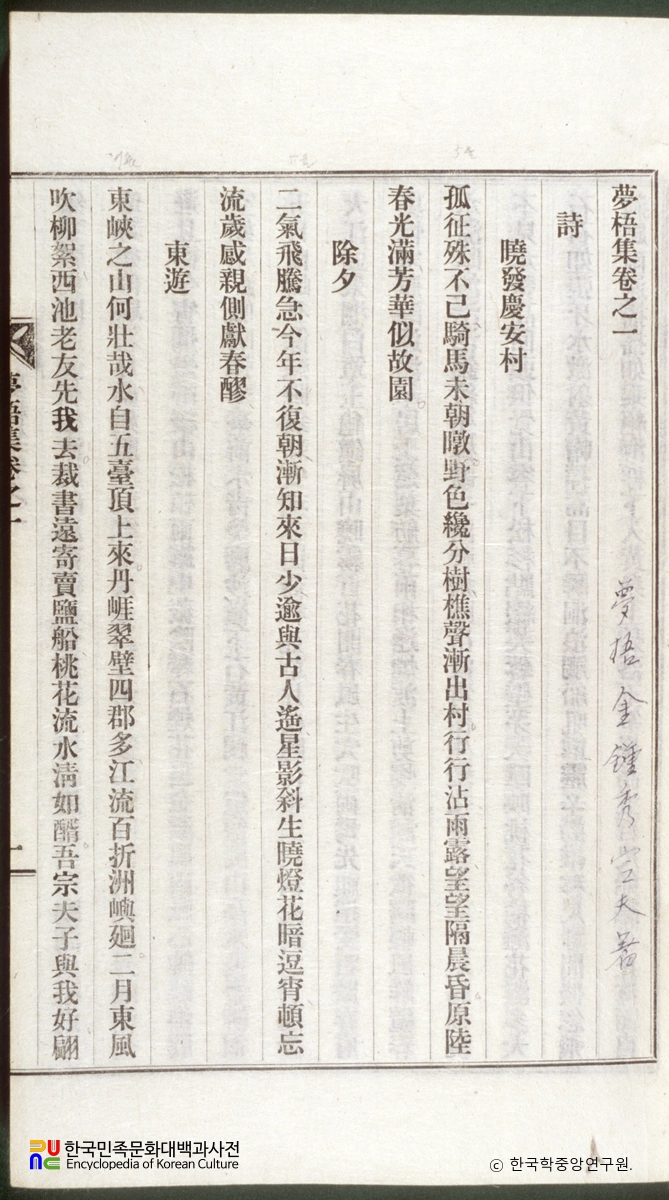 夢梧集卷之一
夢梧金鍾秀定夫著
詩
曉發慶安村
孤征殊不已騎馬未朝暾野色纔分樹樵聲漸出村行行沾雨露望望隔晨昏原陸
春光滿芳華似故園
除夕
二氣飛騰急今年不復朝漸知來日少逾與古人遙星影斜生曉燈花暗逗宵頓忘
流歲感親側獻春醪
東遊
東峽之山何壯哉水自五臺頂上來丹崕翠壁四郡多江流百折洲嶼廻二月東風
吹柳絮西池老友先我去裁書遠寄賣鹽船桃花流水淸如醑吾宗夫子與我好翩
夢梧集卷之一
一
한국민족문화대백과사전
Encyclopedia of Korean Culture
ⓒ 한국학중앙연구원.